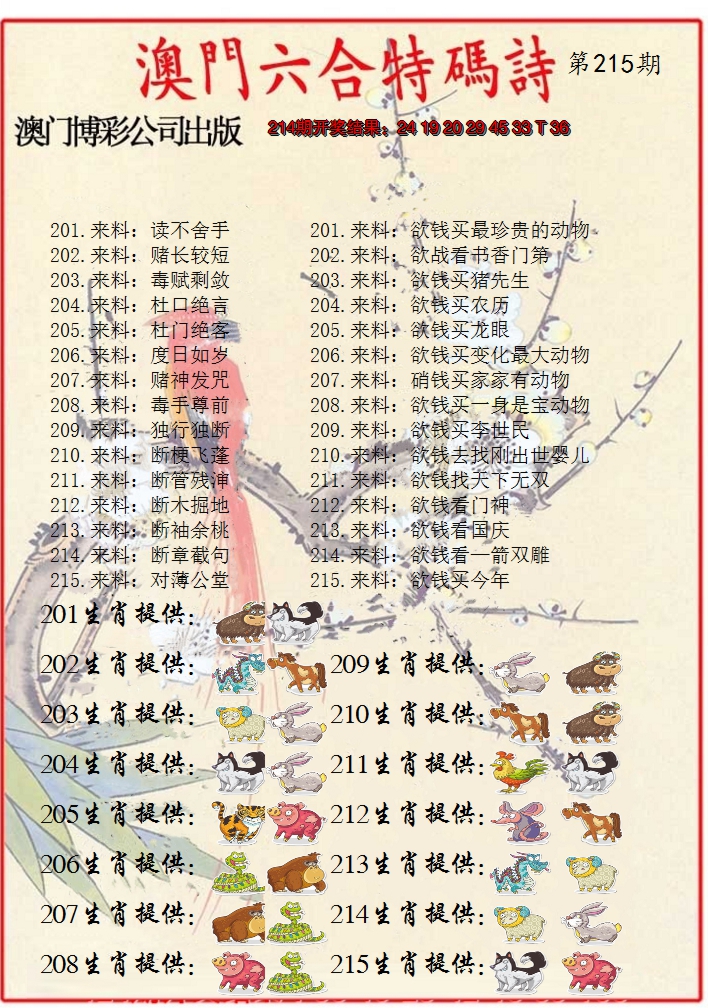 澳門六合特碼詩 第215期
澳门博彩公司出版 214期开奖结果：24 19 20 29 45 33 T 36
201.来料：读不舍手 201.来料：欲钱买最珍贵的动物
202.来料：赌长较短 202.来料：欲战看书香门第
203.来料：毒赋剩敛 203.来料：欲钱买猪先生
204.来料：杜口绝言 204.来料：欲钱买农历
205.来料：杜门绝客 205.来料：欲钱买龙眼
206.来料：度日如岁 206.来料：欲钱买变化最大动物
207.来料：赌神发咒 207.来料：硝钱买家家有动物
208.来料：毒手尊前 208.来料：欲钱买一身是宝动物
209.来料：独行独断 209.来料：欲钱买李世民
210.来料：断梗飞蓬 210.来料：欲钱去找刚出世婴儿
211.来料：断管残渖 211.来料：欲钱找天下无双
212.来料：断木掘地 212.来料：欲钱看门神
213.来料：断袖余桃 213.来料：欲钱看国庆
214.来料：断章截句 214.来料：欲钱看一箭双雕
215.来料：对薄公堂 215.来料：欲钱买今年
201生肖提供：
202生肖提供： 209生肖提供：
203生肖提供： 210生肖提供：
204生肖提供： 211生肖提供：
205生肖提供： 212生肖提供：
206生肖提供： 213生肖提供：
207生肖提供： 214生肖提供：
208生肖提供： 215生肖提供：